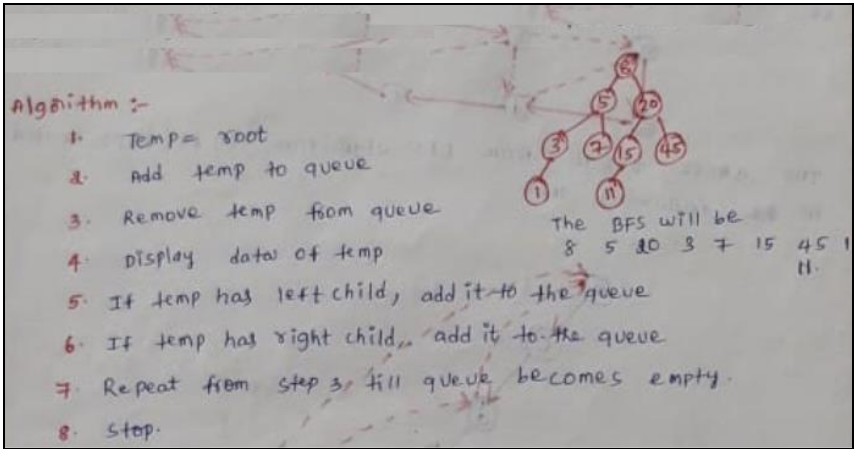 Algorithm :-
1. Temp = root
2. Add temp to queue
3. Remove temp from queue
4. Display data of temp
5. If temp has left child, add it to the queue
6. If temp has right child, add it to the queue
7. Repeat from step 3, till queue becomes empty.
8. Stop.
8
5 20
3 7 15 45
1 11
The BFS will be
8 5 20 3 7 15 45 1
11.